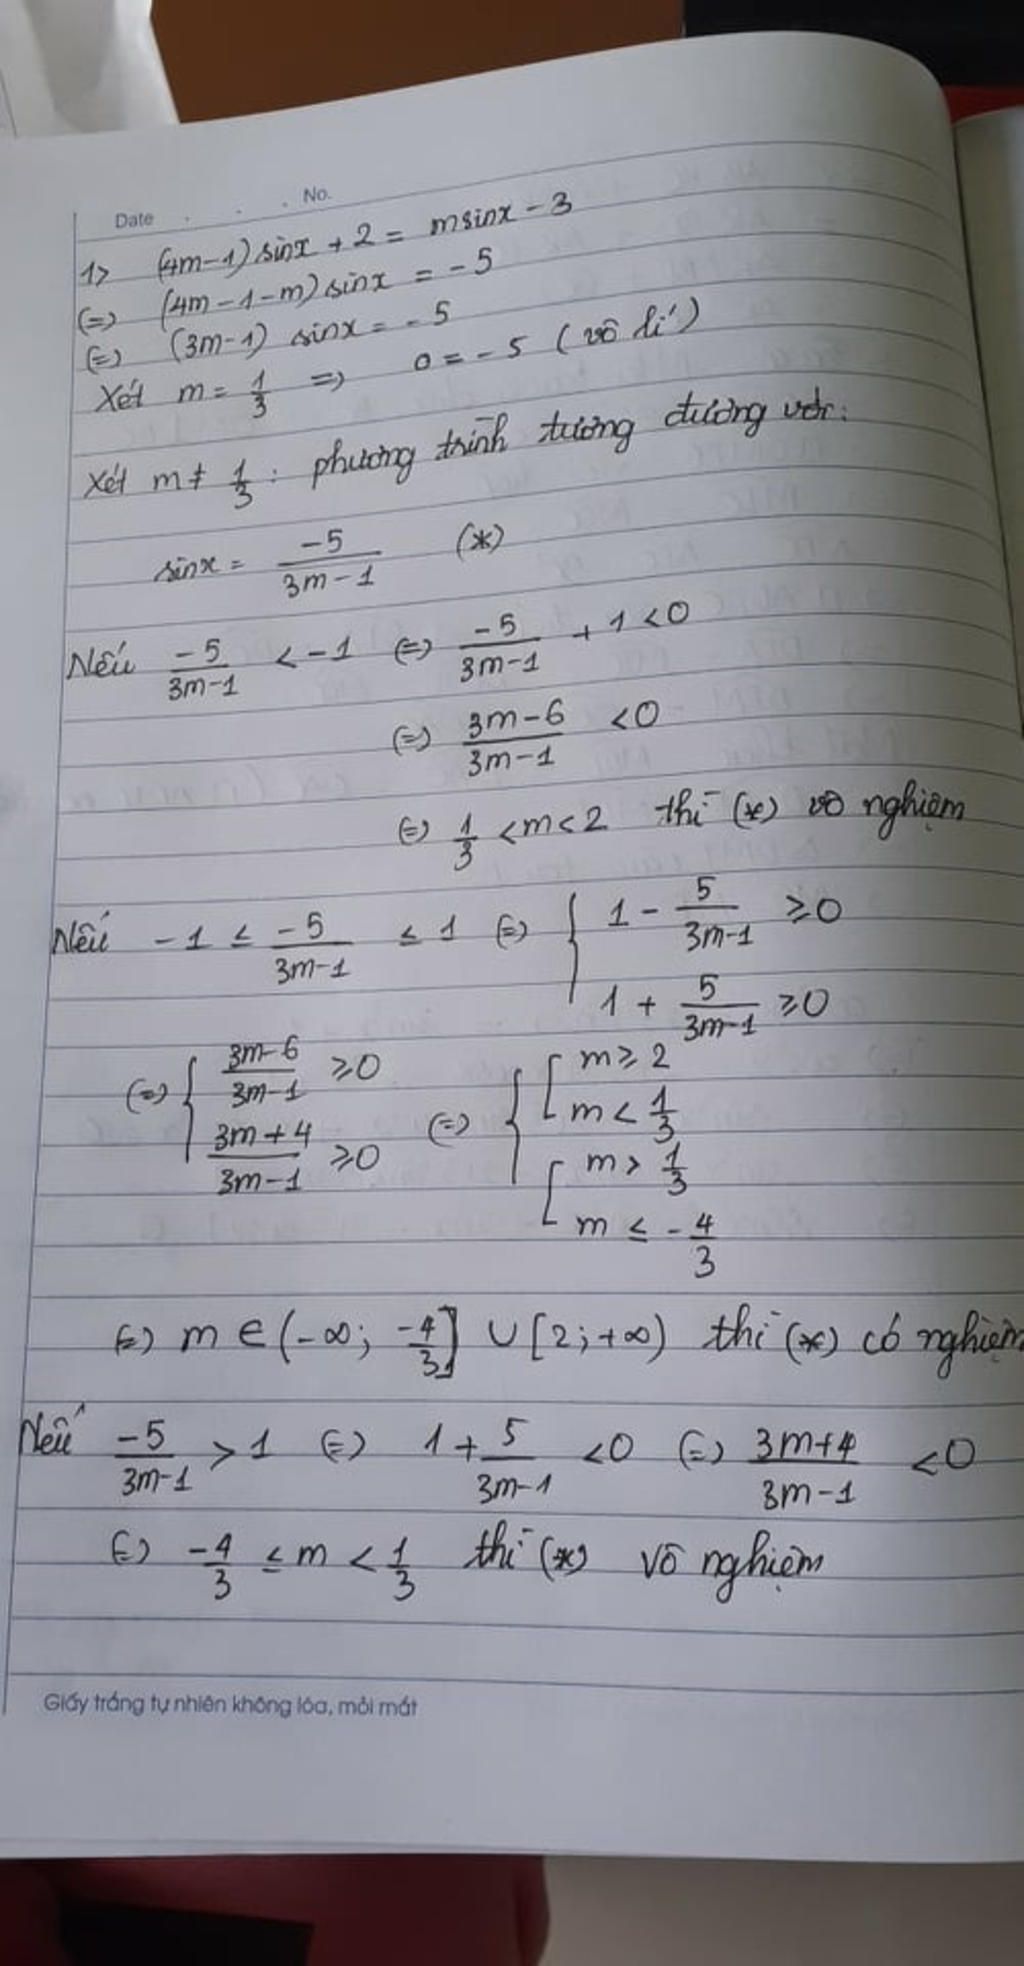 Date . . . No.
1> (4m-1)sinx + 2 = msinx - 3
(=) (4m-1-m)sinx = -5
(=) (3m-1) sinx = -5
Xét m = 1/3 => 0 = -5 (vô lí)
Xét m ≠ 1/3 : phương trình tương đương với:
sinx = -5/(3m-1) (*)
Nếu -5/(3m-1) < -1 (=) -5/(3m-1) + 1 < 0
(=) (3m-6)/(3m-1) < 0
(=) 1/3 < m < 2 thì (*) vô nghiệm
Nếu -1 ≤ -5/(3m-1) ≤ 1 (=) { 1 - 5/(3m-1) ≥ 0
1 + 5/(3m-1) ≥ 0
(=) { (3m-6)/(3m-1) ≥ 0 (=) { [ m ≥ 2
m < 1/3
(3m+4)/(3m-1) ≥ 0 [ m > 1/3
m ≤ -4/3
(=) m ∈ (-∞; -4/3] ∪ [2; +∞) thì (*) có nghiệm
Nếu -5/(3m-1) > 1 (=) 1 + 5/(3m-1) < 0 (=) (3m+4)/(3m-1) < 0
(=) -4/3 ≤ m < 1/3 thì (*) vô nghiệm
Giấy trắng tự nhiên không lóa, mỏi mắt